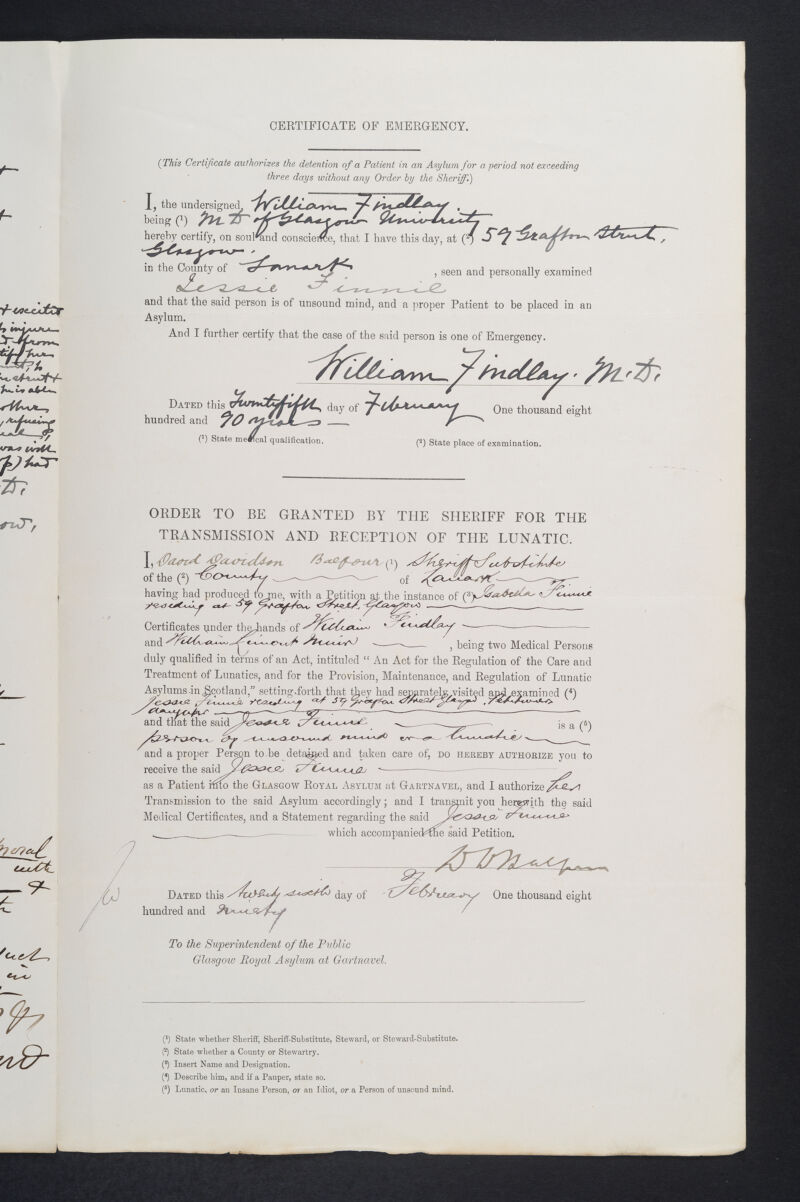 + excited
to injure
CERTIFICATE OF EMERGENCY.
(This Certificate authorizes the detention of a Patient in an Asylum for a period not exceeding
three days without any Order by the Sheriff.)
I, the undersigned, William Findlay.
being (¹) M D of Glasgow University
hereby certify, on soul and conscience, that I have this day, at (²) 59 Grafton Street,
Glasgow.
in the County of Lanark, seen and personally examined
Jessie Finnie
and that the said person is of unsound mind, and a proper Patient to be placed in an
Asylum.
And I further certify that the case of the said person is one of Emergency.
William Findlay. M.D.
DATED this Twentyfifth day of February One thousand eight
hundred and 90 years —
(¹) State medical qualification. (²) State place of examination.
ORDER TO BE GRANTED BY THE SHERIFF FOR THE
TRANSMISSION AND RECEPTION OF THE LUNATIC.
I, David Davidson Balfour (¹) Sheriff Substitute
of the (²) County of Lanark
having had produced to me, with a Petition at the instance of (³) Isabella Finnie
residing at 59 Grafton Street, Glasgow
Certificates under the hands of William Findlay
and William Limont Muir, being two Medical Persons
duly qualified in terms of an Act, intituled “ An Act for the Regulation of the Care and
Treatment of Lunatics, and for the Provision, Maintenance, and Regulation of Lunatic
Asylums in Scotland,” setting forth that they had separately visited and examined (⁴)
Jessie Finnie residing at 59 Grafton Street Glasgow Petitioners
daughter
and that the said Jessie Finnie is a (⁵)
person of unsound mind or a lunatic
and a proper Person to be detained and taken care of, DO HEREBY AUTHORIZE you to
receive the said Jessie Finnie
as a Patient into the GLASGOW ROYAL ASYLUM at GARTNAVEL, and I authorize her
Transmission to the said Asylum accordingly; and I transmit you herewith the said
Medical Certificates, and a Statement regarding the said Jessie Finnie
which accompanied the said Petition.
D D Balfour
DATED this twenty sixth day of February One thousand eight
hundred and ninety
To the Superintendent of the Public
Glasgow Royal Asylum at Gartnavel.
(¹) State whether Sheriff, Sheriff-Substitute, Steward, or Steward-Substitute.
(²) State whether a County or Stewartry.
(³) Insert Name and Designation.
(⁴) Describe him, and if a Pauper, state so.
(⁵) Lunatic, or an Insane Person, or an Idiot, or a Person of unsound mind.